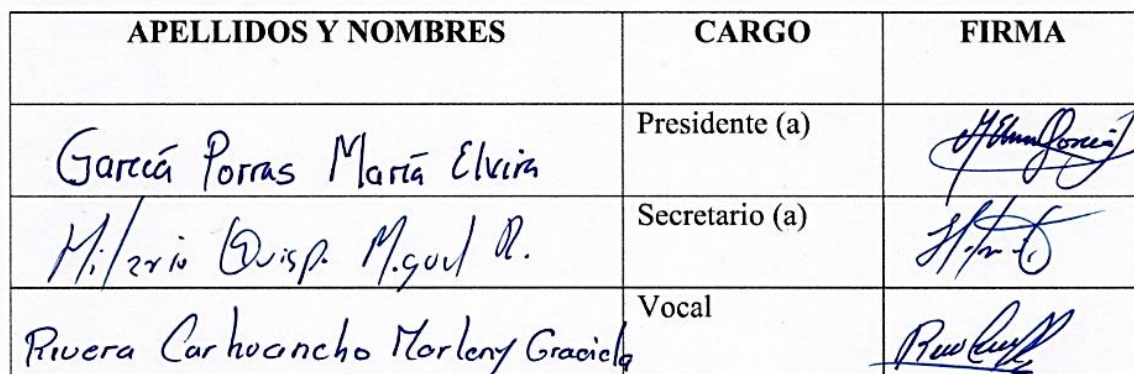 APELLIDOS Y NOMBRES CARGO FIRMA
García Porras María Elvira Presidente (a)
Hilario Quisp. Miguel R. Secretario (a)
Rivera Carhuancho Marleny Graciela Vocal